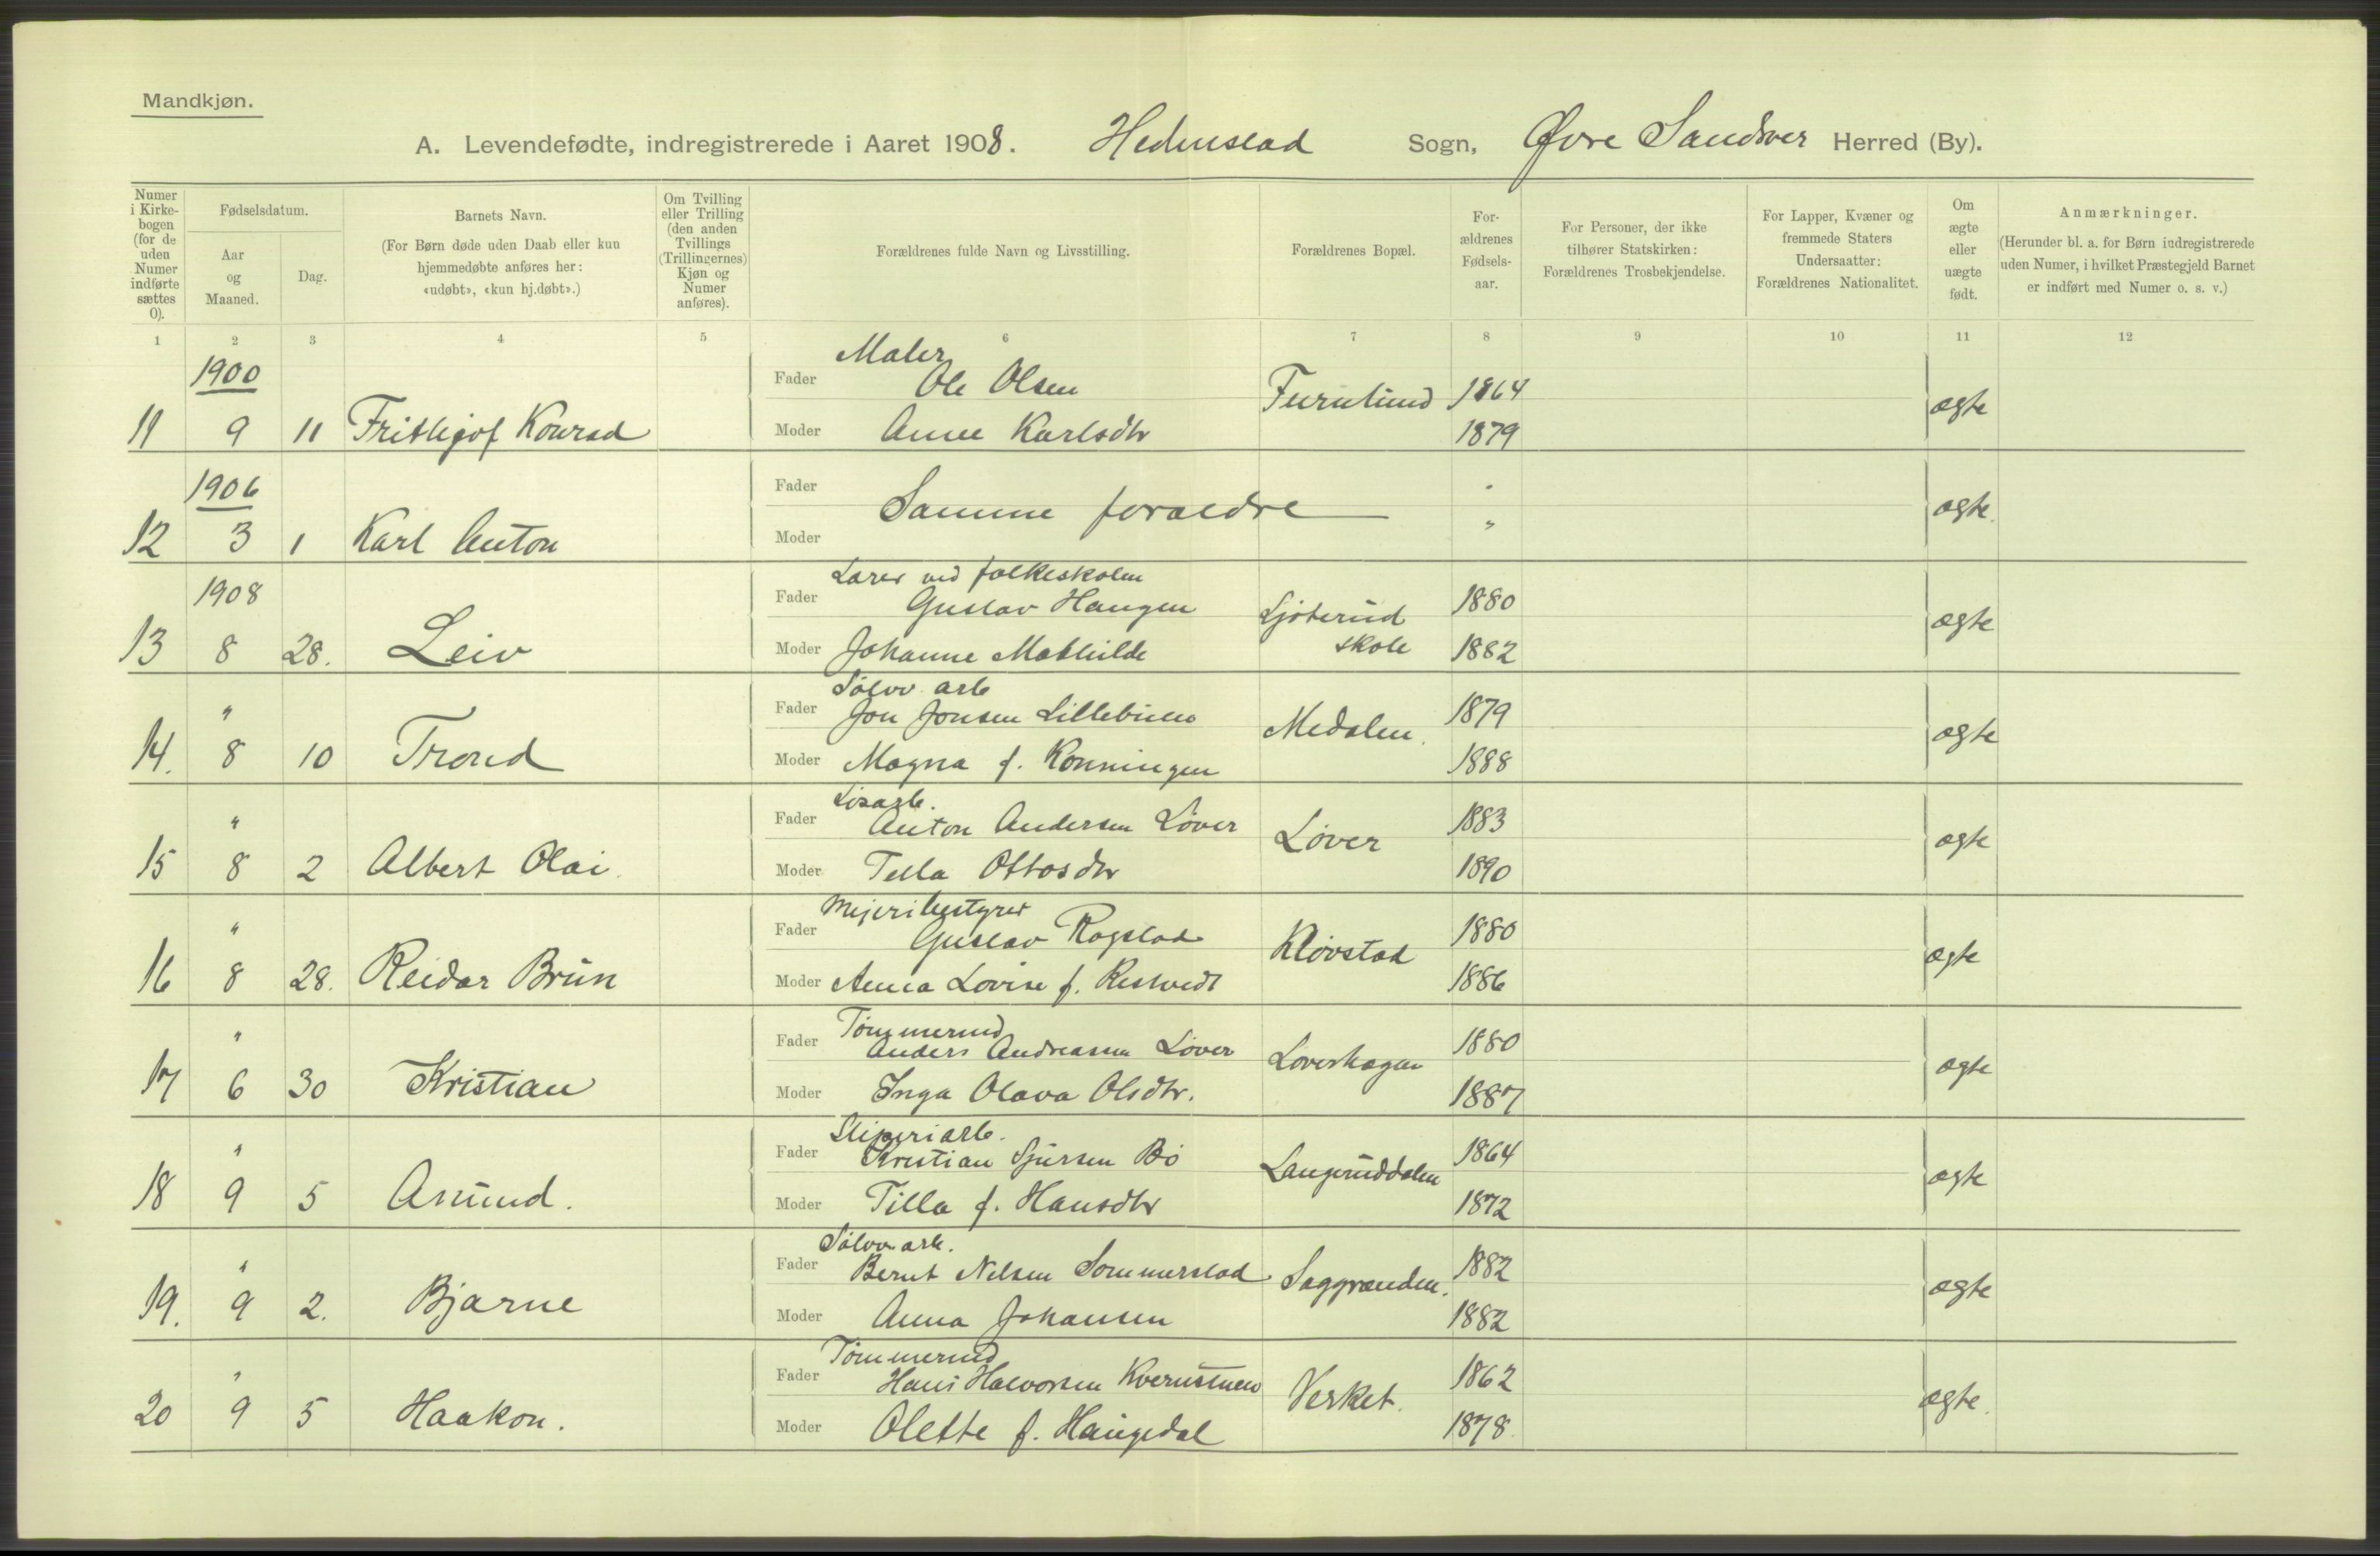 Mandkjøn.
A. Levendefødte, indregistrerede i Aaret 1908. Hedenstad Sogn, Øvre Sandsvær Herred (By).
Numer i Kirkebogen (for de uden Numer indførte sættes 0).
Fødselsdatum.
Aar og Maaned.
Dag.
Barnets Navn.
(For Børn døde uden Daab eller kun hjemmedøbte anføres her: «udøbt», «kun hj.døbt».)
Om Tvilling eller Trilling (den anden Tvillings (Trillingernes) Kjøn og Numer anføres).
Forældrenes fulde Navn og Livsstilling.
Forældrenes Bopæl.
Forældrenes Fødselsaar.
For Personer, der ikke tilhører Statskirken: Forældrenes Trosbekjendelse.
For Lapper, Kvæner og fremmede Staters Undersaatter: Forældrenes Nationalitet.
Om ægte eller uægte født.
Anmærkninger.
(Herunder bl. a. for Børn indregistrerede uden Numer, i hvilket Præstegjeld Barnet er indført med Numer o. s. v.)
1 2 3 4 5 6 7 8 9 10 11 12
1900 Maler
Fader Ole Olsen Furulund 1864
11 9 11 Frithjof Konrad Moder Anne Karlsdtr 1879 ægte
1906 Fader Samme forældre "
12 3 1 Karl Anton Moder " ægte
1908 Lærer ved folkeskolen
Fader Gustav Haugen Ljøterud skole 1880
13 8 28. Leiv Moder Johanne Mathilde 1882 ægte
" Sølvv. arb
Fader Jon Jonsen Lillebuen Medalen 1879
14. 8 10 Trond Moder Magna f. Konningen 1888 ægte
" Løsarb.
Fader Anton Andersen Løver Løver 1883
15 8 2 Albert Olai. Moder Tella Ottosdtr 1890 ægte
" Mejeribestyrer
Fader Gustav Rogstad Kløvstad 1880
16 8 28. Reidar Brun Moder Anna Lovise f. 1886 ægte
" Tømmermd
Fader Anders Andreassen Løver Løverhagen 1880
17 6 30 Kristian Moder Inga Olava Olsdtr. 1887 ægte
" Sliperiarb.
Fader Kristian Sjursen Bø Langeruddalen 1864
18 9 5 Amund. Moder Tilla f. Hansdtr 1872 ægte
" Sølvv. arb.
Fader Bernt Nilsen Sommerstad Saggrænden. 1882
19. 9 2. Bjarne Moder Anna Johansen 1882 ægte
" Tømmermd
Fader Hans Halvorsen Kvernstuen Verket. 1862
20 9 5 Haakon. Moder Olette f. Haugedal 1878 ægte